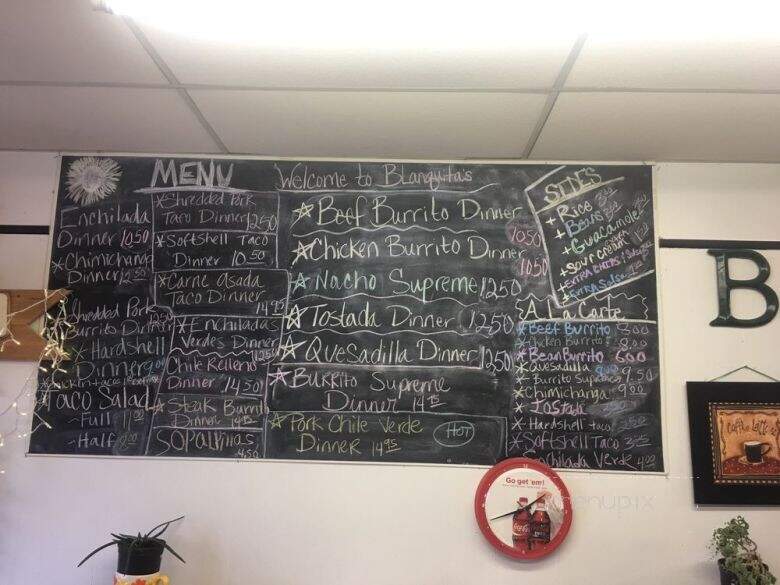 MENU
Welcome to Blanquita's
Enchilada
Dinner 10.50
*Chimichanga
Dinner 12.50
Shredded Pork
Burrito Dinner
*Hardshell
Dinner
Taco Salad
-Full
-Half
*Shredded Pork
Taco Dinner 12.50
*Softshell Taco
Dinner 10.50
*Carne asada
Taco Dinner 14.95
*Enchiladas
Verdes Dinner
Chile Relleno
Dinner 14.50
*Steak Burrito
Dinner 14.95
Sopapillas
4.50
*Beef Burrito Dinner
10.50
*Chicken Burrito Dinner
10.50
*Nacho Supreme 12.50
*Tostada Dinner 12.50
*Quesadilla Dinner 12.50
*Burrito Supreme
Dinner 14.95
*Pork Chile Verde
Dinner 14.95
HOT
SIDES
+Rice
+Beans
+Guacamole
+Sour cream
+Extra Salsa
A La Carte
*Beef Burrito 8.00
*Chicken Burrito 8.00
*Bean Burrito 6.00
*Quesadilla
*Burrito Supreme 9.50
*Chimichanga 9.00
*Tostada
*Hardshell taco
*Softshell Taco 3.75
Enchilada Verde 4.00
B
Go get 'em!
Coca-Cola
Caffe Latte
menupix